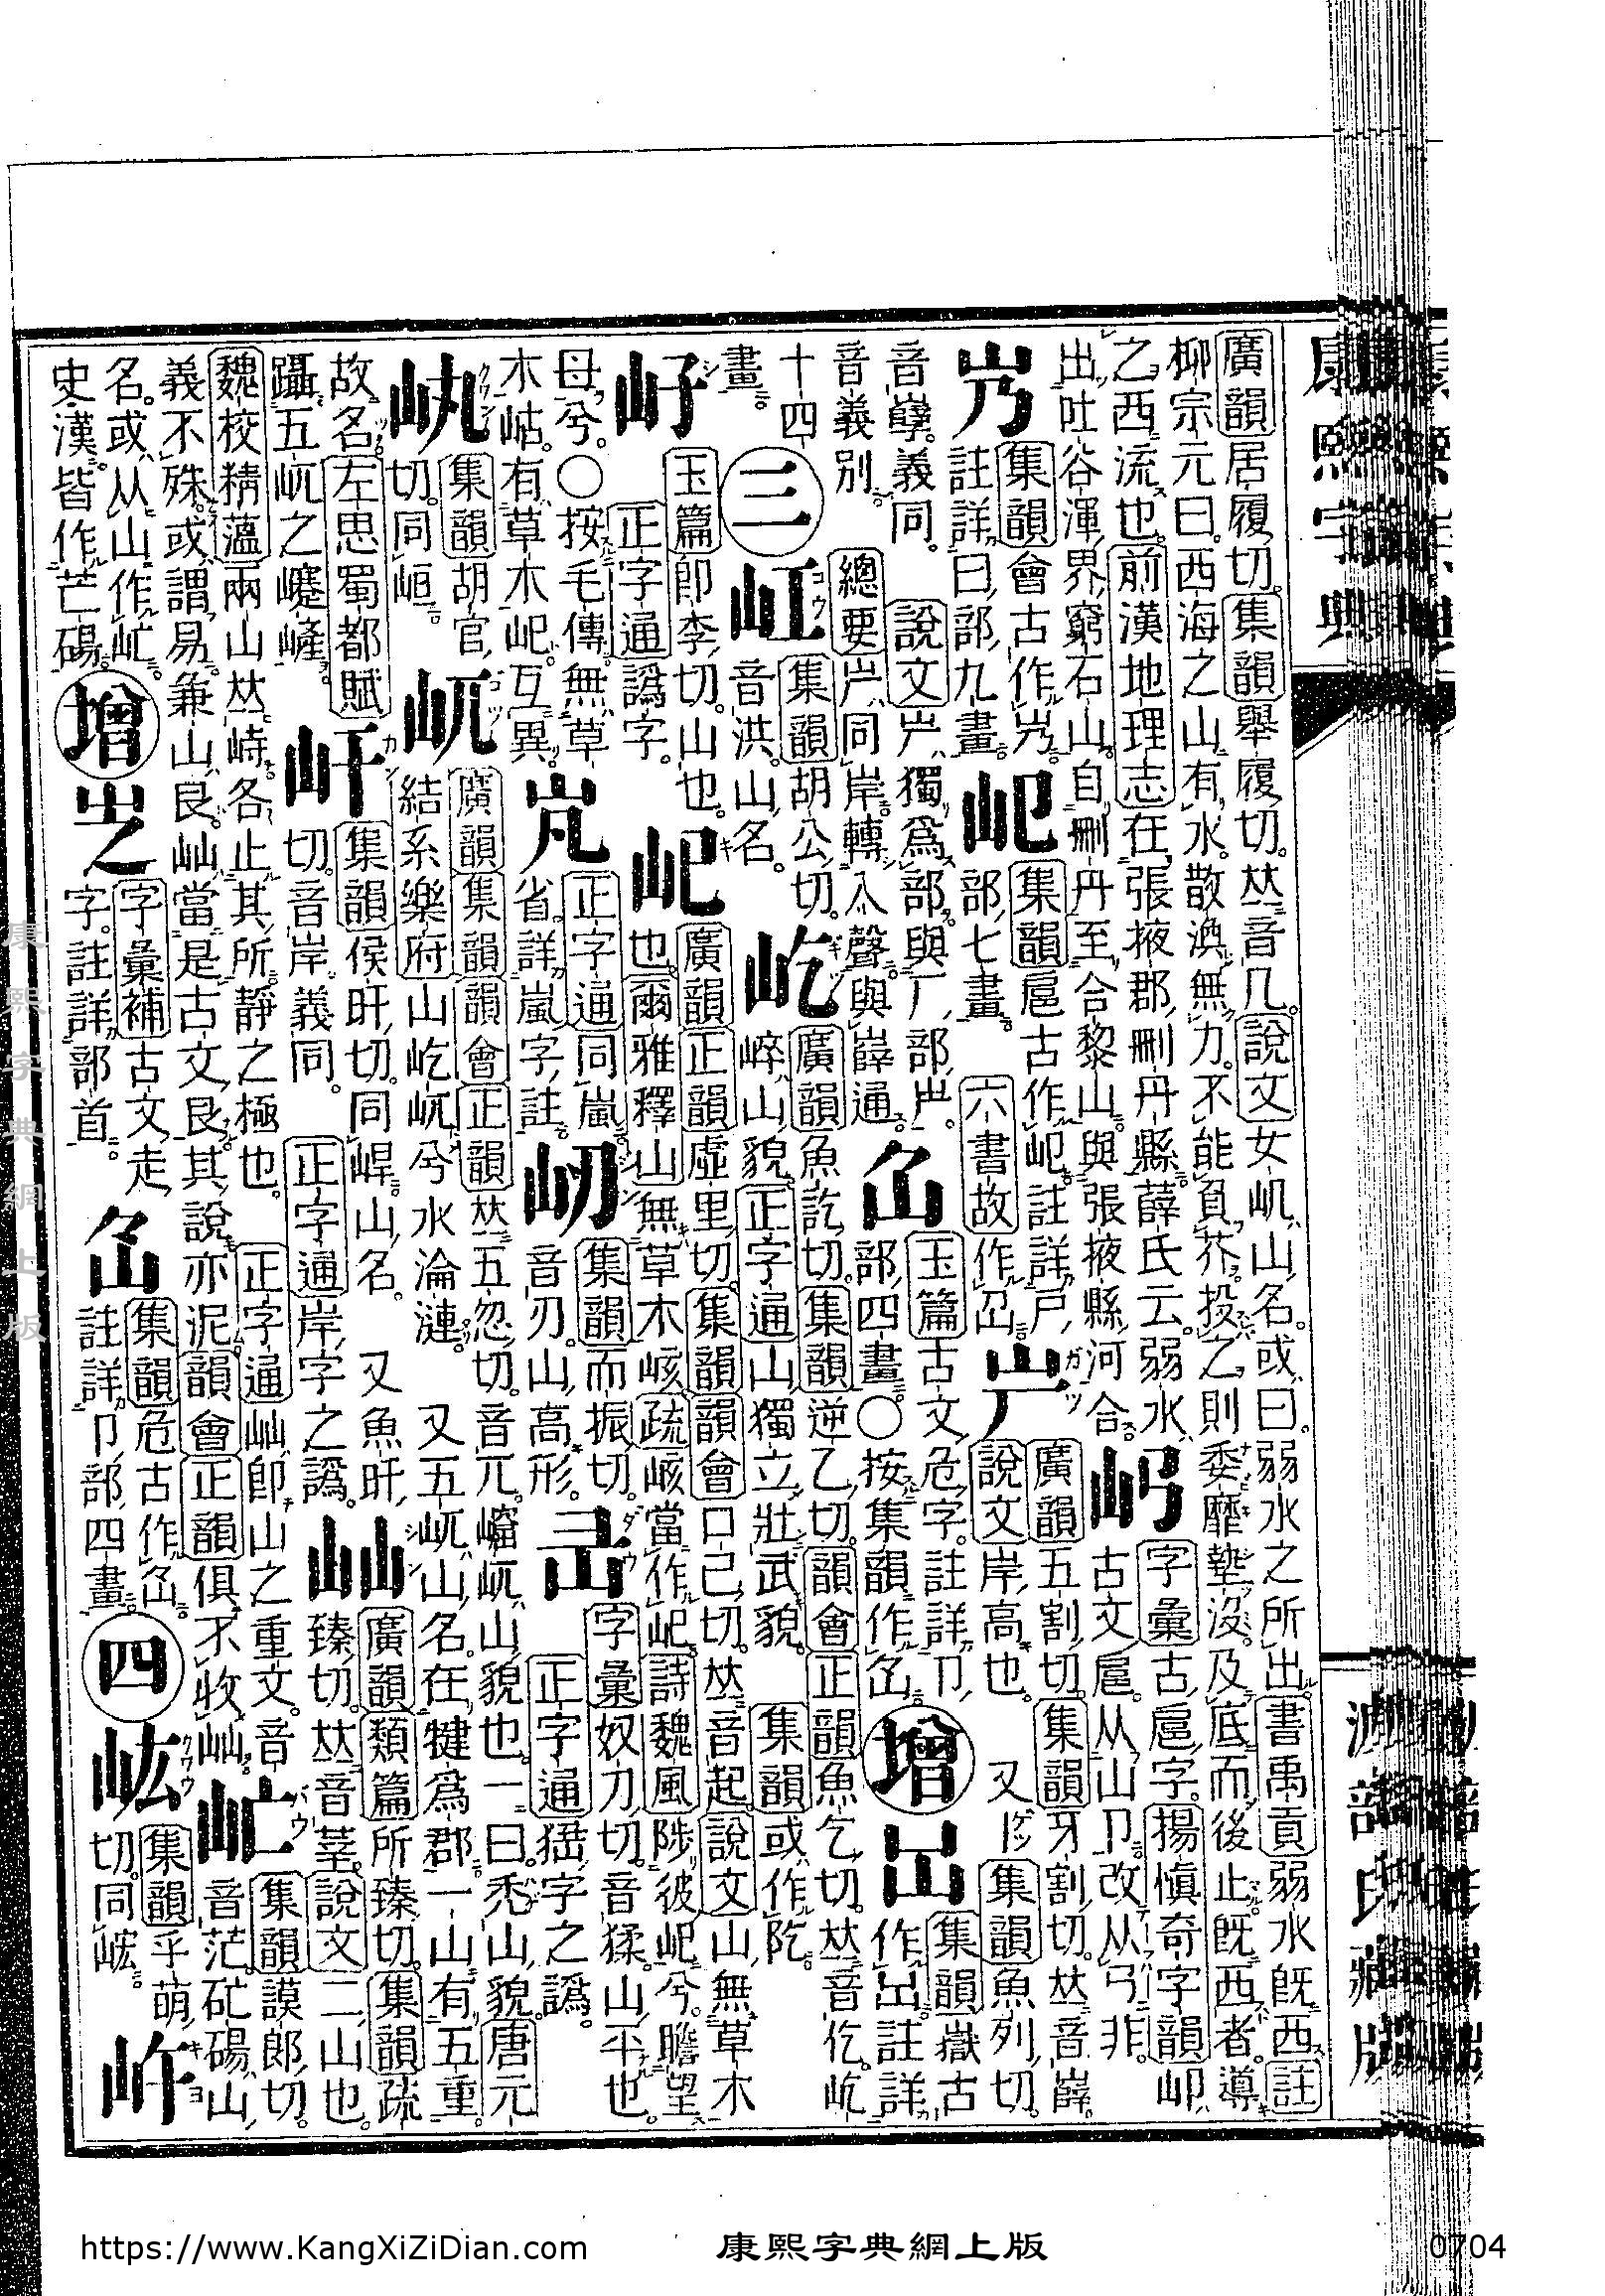 康熙字典
廣韻居履切集韻舉履切𠀤音几說文女屼山名或曰弱水之所出書禹貢弱水旣西註
柳宗元曰西海之山有水散渙無力不能負芥投之則委靡墊沒及底而後止旣西者導
之西流也前漢地理志在張掖郡刪丹縣薛氏云弱水
出吐谷渾界窮石山自刪丹至合黎山與張掖縣河合
字彙古扈字揚愼奇字韻
古文扈从山卩改从弓非
集韻會古作
註詳曰部九畫
屺
集韻扈古作屺註詳戶
部七畫 六書故作
屵
廣韻五割切集韻牙割切𠀤音嶭
說文岸高也 又集韻魚列切
音孼義同 說文屵獨爲部與厂部屵
音義別 總要屵同岸轉入聲與嶭通
㞾
玉篇古文危字註詳卩
部四畫○按集韻作㞾
增
集韻嶽古
作 註詳
十四
畫
三
屸
集韻胡公切
音洪山名
屹
廣韻魚訖切集韻逆乙切韻會正韻魚乞切𠀤音仡屹
崪山貌正字通山獨立壯武貌 集韻或作阣
㞨
玉篇卽李切山也
正字通譌字
屺
廣韻正韻虛里切集韻韻會口己切𠀤音起說文山無草木
也爾雅釋山無草木峐疏峐當作屺詩魏風陟彼屺兮瞻望
母兮○按毛傳無草
木岵有草木屺互異
正字通同嵐
省詳嵐字註
屻
集韻而振切
音刃山高形
字彙奴刀切音猱山平也
正字通 字之譌
集韻胡官
切同峘
屼
廣韻集韻韻會正韻𠀤五忽切音兀 屼山貌也一曰禿山貌唐元
結系樂府山屹屼兮水淪漣 又五屼山名在犍爲郡一山有五重
故名左思蜀都賦
躡五屼之蹇嵼
屽
集韻侯旰切同 山名 又魚旰
切音岸義同 正字通岸字之譌
屾
廣韻類篇所臻切集韻疏
臻切𠀤音莘說文二山也
魏校精薀兩山𠀤峙各止其所靜之極也 正字通屾卽山之重文音
義不殊或謂易兼山艮屾當是古文艮其說亦泥韻會正韻俱不收屾
集韻謨郎切
音茫 碭山
名或从山作
史漢皆作芒碭
增
㞢
字彙補古文走
字註詳部首
㞾
集韻危古作㞾
註詳卩部四畫
四
集韻乎萌
切同
岞
康熙字典網上版
https://www.KangXiZiDian.com
康熙字典網上版
0704